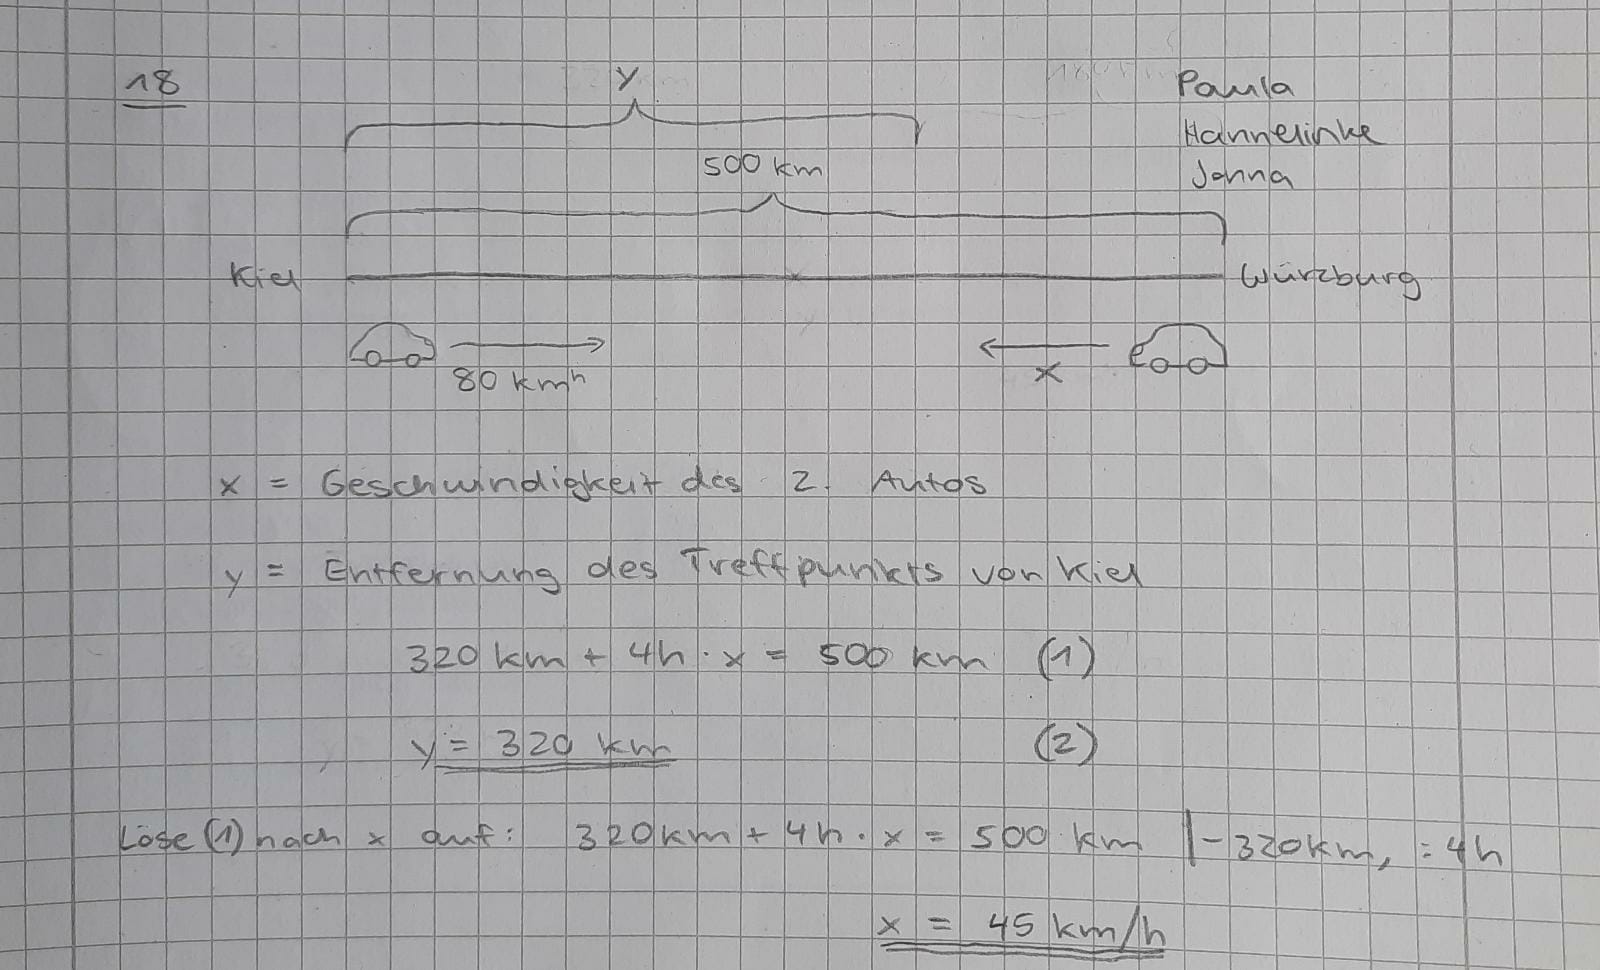 18
y
Paula
Hannelinke
Jonna
500 km
Kiel
Würzburg
80 kmh
x
x = Geschwindigkeit des 2. Autos
y = Entfernung des Treffpunkts von Kiel
320 km + 4h · x = 500 km (1)
y = 320 km (2)
Löse (1) nach x auf: 320km + 4h · x = 500 km |-320km, :4h
x = 45 km/h